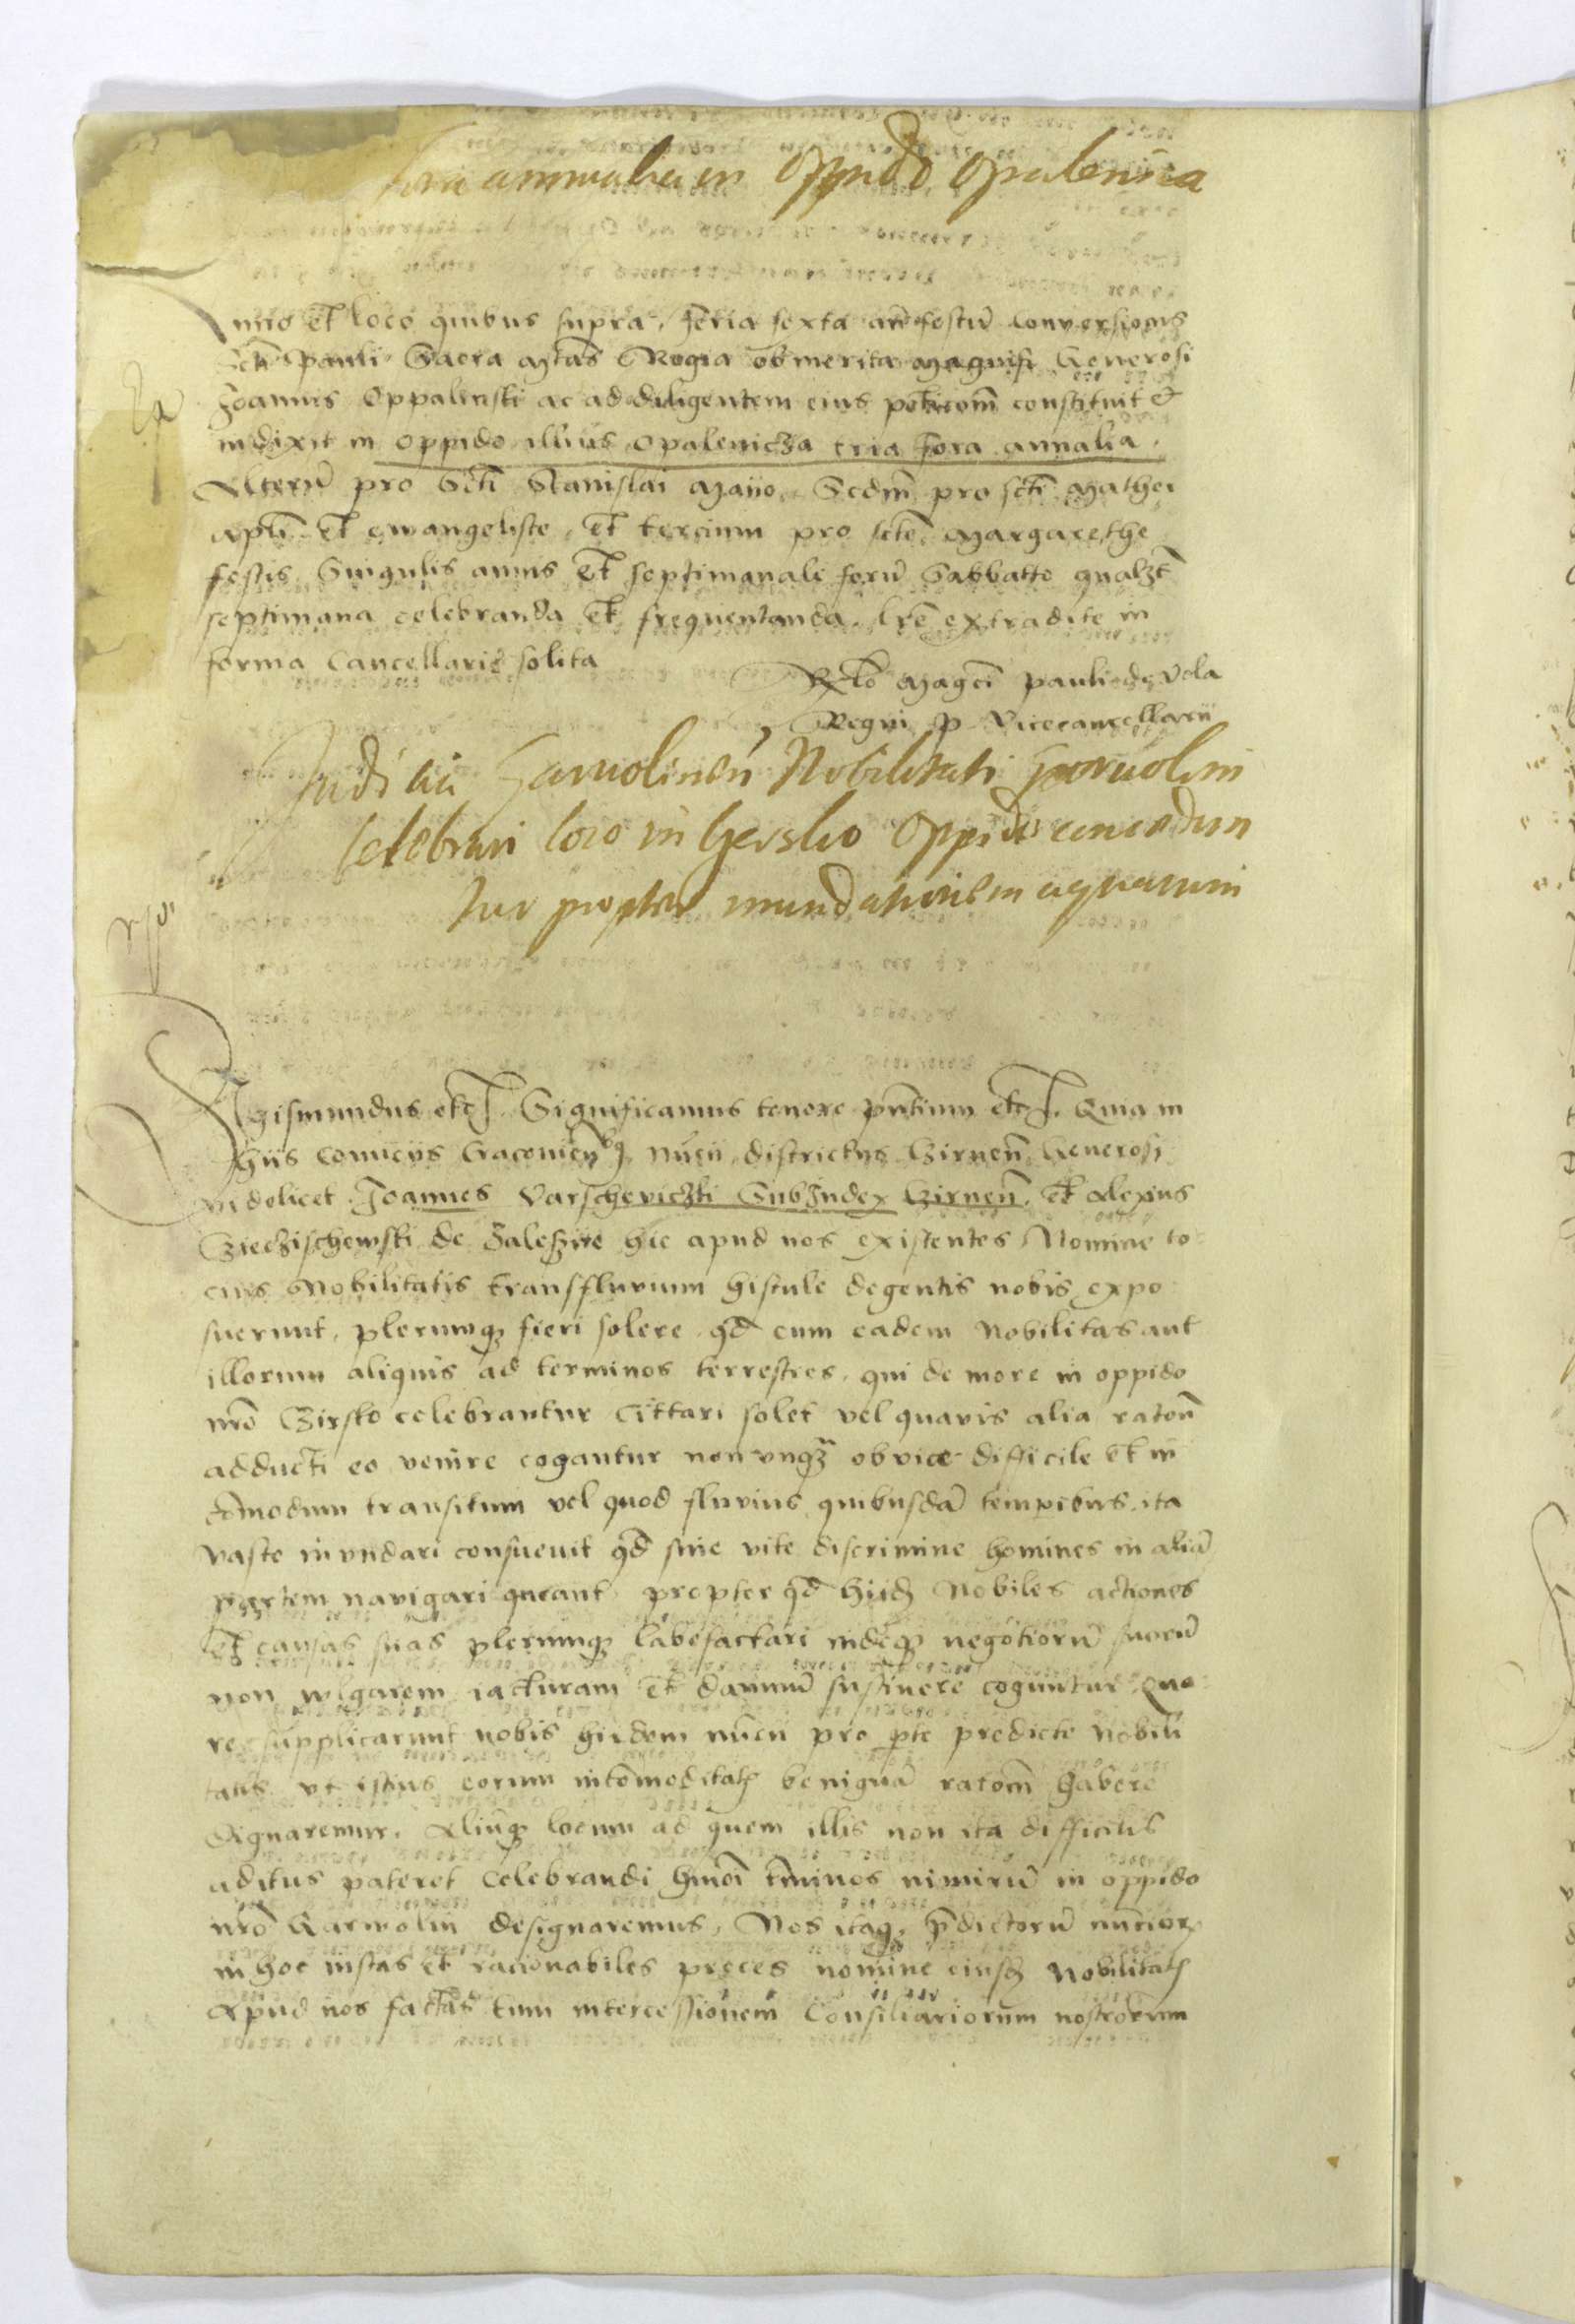 Fora annualia in oppido Opalenica
Anno et loco quibus supra, feria sexta ante festũ Conversionis
Scti Pauli Sacra Mtas Regia ob merita Magnifi Generosi
Joannis Oppalenski ac ad diligentem eius petitionem constituit &
indixit in oppido illius Opalenicza tria fora annalia.
Alterũ pro Scti Stanislai Maiio, Scdm̃ pro scti Mathei
Apli et Ewangeliste, et tercium pro scte Margarethe
festis Singulis annis Et septimanale forũ Sabbatto qualzt
septimana celebranda et frequentanda. Lre extradite in
forma Cancellarie solita
Rlo Magci Pauli de Vola
Regni P. Vicecancellarii
Judicia Garwolinen Nobilitati Garwolin
celebrari loco in Czersko oppidis conceduntur
propter inundationem aquarum
Sigismundus etc. Significamus tenore pñtium etc. Quia in
hiis Comiciis Cracovien Nũcii districtus Czirnen Generosi
videlicet Joannes Varscheviczki SubJudex Czirnen, et Alexius
de Zalesze hic apud nos existentes Nomine to
cius Nobilitatis trans fluvium Histule degentis nobis expo
suerunt, plerumqz fieri solere qd cum eadem Nobilitas aut
illorum aliquis ad terminos terrestres, qui de more in oppido
nro Czirsko celebrantur Cittari solet vel quavis alia ratoñ
adducti eo venire cogantur non vnqz ob vice difficile et in
cõmodum transitum vel quod fluvius quibusdã tempibus ita
vaste invndari consuevit qd sine vite discrimine homines in aliã
partem navigari queant propter qd hiidz Nobiles actiones
et causas suas plerumqz labefactari indeqz negotiorũ suorũ
non vulgarem iacturam et damnũ sustinere coguntur Qua
re supplicarunt nobis hiidem nũcii pro pte predicte Nobili
tatis vt istius eorum incõmoditatis benignã ratom̃ habere
dignaremur, Aliũqz locum ad quem illis non ita difficilis
aditus pateret Celebrandi hm̃oi tm̃inos nimirũ in oppido
nr̃o Garwolin designaremus, Nos itaqz p̃dictorũ nuncior
in hoc iustas et racionabiles preces nomine eiusdz Nobilitatis
Apud nos factas tum intercessionem Consiliariorum nostrorum